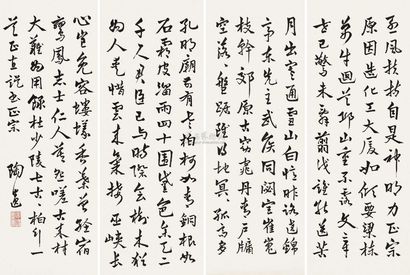 孔明廟前有老柏柯如青銅根如
石霜皮溜雨四十圍黛色參天二
千尺君臣已與時際會樹木猶
為人愛惜雲來氣接巫峽長
月出寒通雪山白憶昨路遶錦
亭東先主武侯同閟宮崔嵬
枝幹郊原古窈窕丹青戶牖
空落落盤踞雖得地冥冥孤高多
烈風扶持自是神明力正直
原因造化工大廈如傾要梁棟
萬牛回首丘山重不露文章
世已驚未辭翦伐誰能送苦
心豈免容螻蟻香葉終經宿
鸞鳳志士仁人莫怨嗟古來材
大難為用錄杜少陵七古古柏行一
正
陶